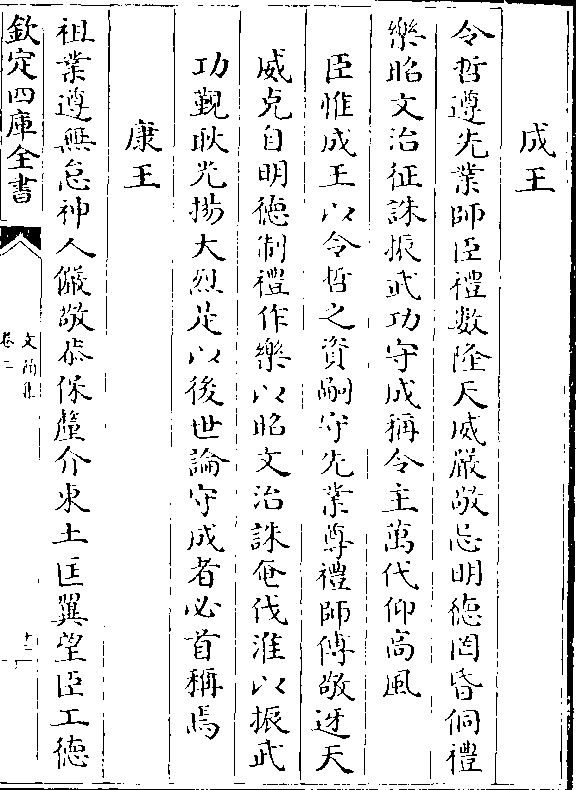 成王
令哲遵先業師臣禮數隆天威嚴敬忌明徳罔昏侗禮
樂昭文治征誅振武功守成稱令主萬代仰高風
臣惟成王以令哲之資嗣守先業尊禮師傅敬迓天
威克自明徳制禮作樂以昭文治誅奄伐淮以振武
功覲耿光揚大烈是以後世論守成者必首稱焉
康王
祖業遵無怠神人儼敬恭保釐介東土匡翼望臣工徳
欽定四庫全書
文簡集
卷二